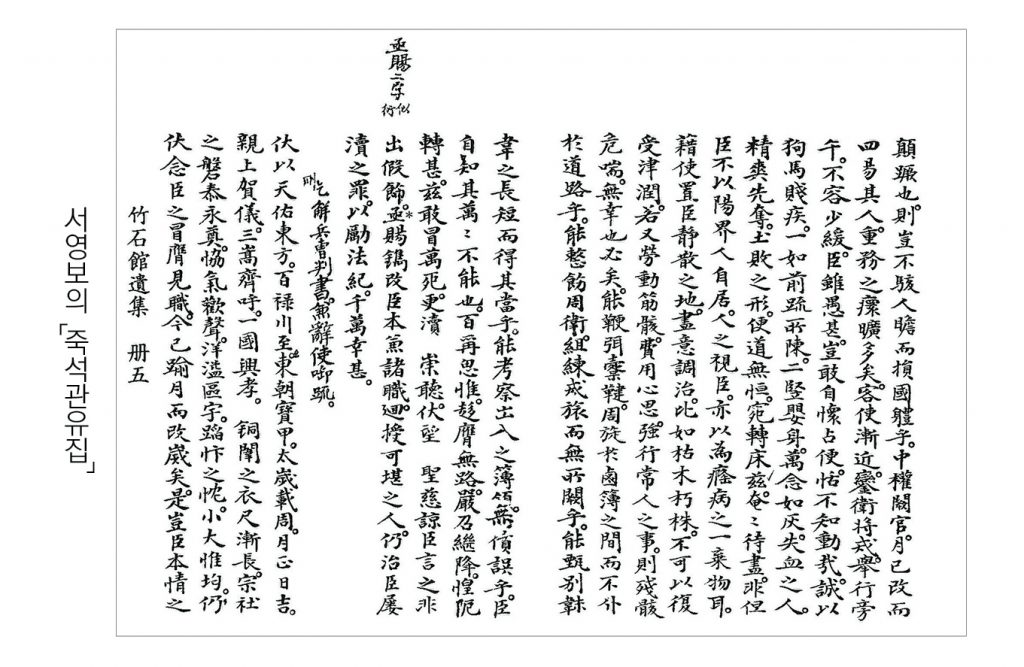 顛蹶也則豈不駭人瞻而損國軆乎。中權闕官。月已改而
四易其人。重務之瘝曠多矣。客使漸近。鑾衛將戒。舉行旁
午。不容少緩。臣雖愚甚。豈敢自愫占便。恬不知動哉。誠以
狗馬賤疾。一如前疏所陳。二竪嬰身。萬念如灰。失血之人。
精爽先奪。土敗之形。便道無恒。宛轉床玆。奄〻待盡。非但
臣不以陽界人自居。人之視臣。亦以為癃病之一棄物耳。
藉使置臣靜散之地。盡意調治。比如枯木朽株。不可以復
受津潤。若又勞動筋骸。費用心思。強行常人之事。則殘骸
危喘。無幸也必矣。能鞭弭櫜鞬。周旋於鹵簿之間而不仆
於道路乎。能整飭周衛。組練戎旅而無所闕乎。能甄別韎
韋之長短而得其當乎。能考察出入之簿領。無僨誤乎。臣
自知其萬〻不能也。百爾思惟。趍膺無路。嚴召繼降。惶阨
轉甚。玆敢冒萬死。更瀆 崇聽。伏望 聖慈諒臣言之非
亟賜二字似衍
出假飾。亟*賜鐫改臣本兼諸職。迴授可堪之人。仍治臣屢
瀆之罪。以勵法紀。千萬幸甚。
乞解兵曹判書兼辭使啣疏。
伏以天佑東方。百禄川至。東朝寶甲。太歲載周。月正日吉。
親上賀儀。三嵩齊呼。一國興孝。 銅闈之衣尺漸長。宗社
之磐泰永奠。恊氣歡聲。洋溢區宇。蹈忭之忱。小大惟均。仍
伏念臣之冒膺見職。今已踰月而改歲矣。是豈臣本情之
竹石館遺集 册五
서영보의 「죽석관유집」